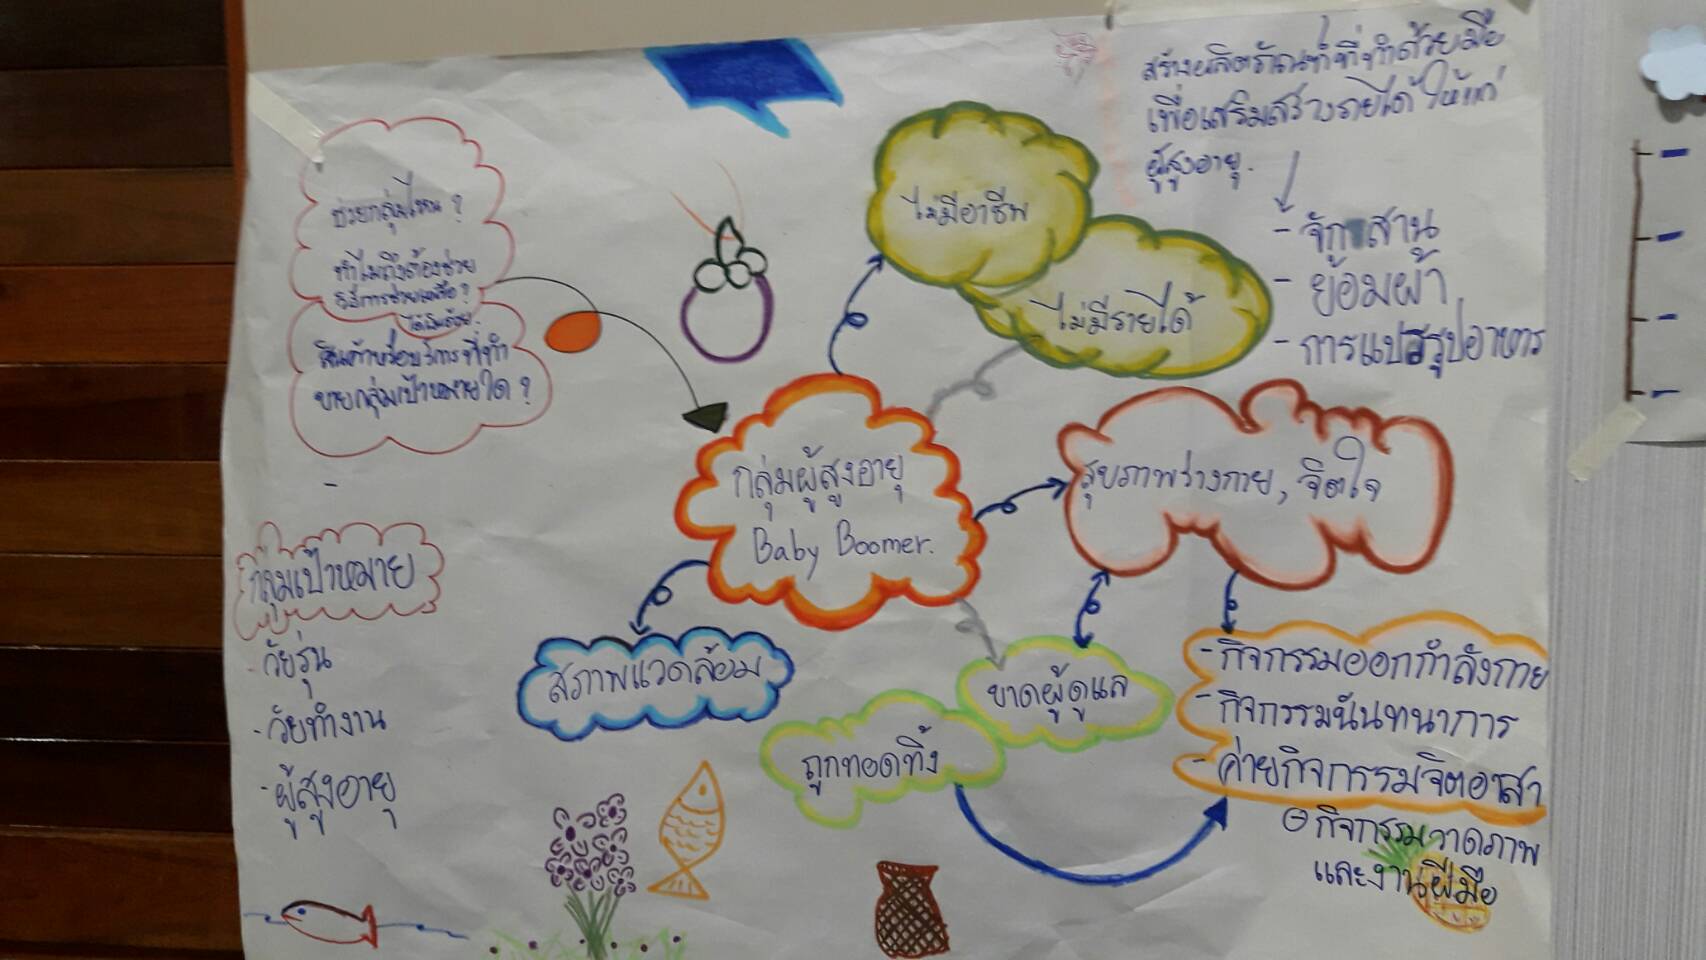 ช่วยกลุ่มไหน ?
ทำไมถึงต้องช่วย
วิธีการช่วยเหลือ ?
สินค้าหรือบริการที่ทำ
ขายกลุ่มเป้าหมายใด ?
กลุ่มเป้าหมาย
- วัยรุ่น
- วัยทำงาน
- ผู้สูงอายุ
ไม่มีอาชีพ
ไม่มีรายได้
สร้างผลิตภัณฑ์ที่ทำด้วยมือ
เพื่อเสริมสร้างรายได้ให้แก่
ผู้สูงอายุ.
- จักสาน
- ย้อมผ้า
- การแปรรูปอาหาร
กลุ่มผู้สูงอายุ
Baby Boomer.
สุขภาพร่างกาย, จิตใจ
สภาพแวดล้อม
ขาดผู้ดูแล
ถูกทอดทิ้ง
- กิจกรรมออกกำลังกาย
- กิจกรรมนันทนาการ
- ค่ายกิจกรรมจิตอาสา
กิจกรรมวาดภาพ
และงานฝีมือ